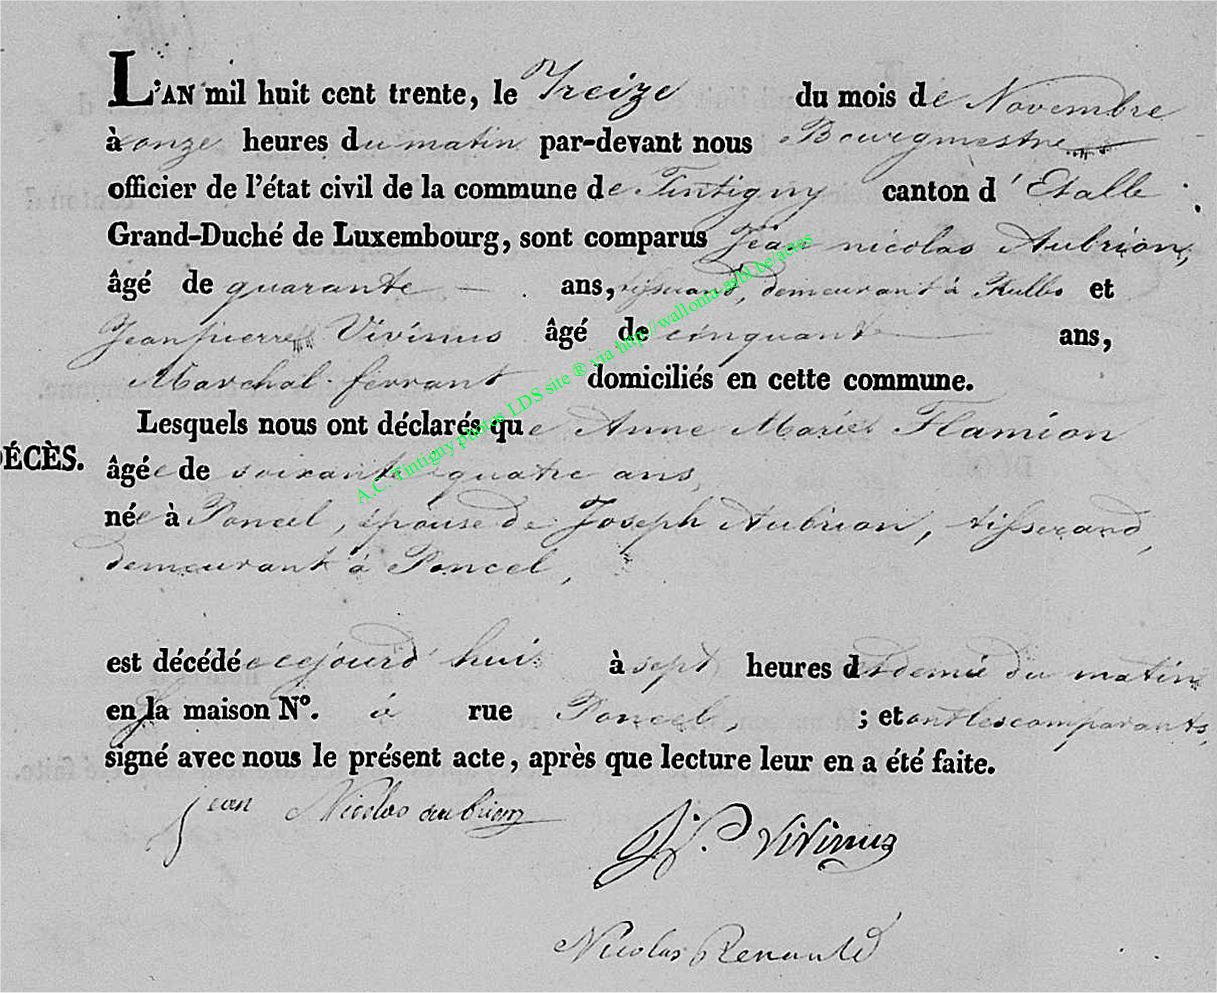 L'AN mil huit cent trente, le Treize du mois de Novembre
à onze heures du matin par-devant nous Bourgmestre
officier de l'état civil de la commune de Tintigny canton d'Etalle
Grand-Duché de Luxembourg, sont comparus Jean nicolas Aubrion,
âgé de quarante ans, tisserand, demeurant à et
Jeanpierre Vivinus âgé de cinquante ans,
Marchal ferrant domiciliés en cette commune.
Lesquels nous ont déclarés que Anne Marie Flamion
DÉCÈS.
âgée de soixante quatre ans,
née à Poncel, épouse de Joseph Aubrion, tisserand,
demeurant à Poncel,
est décédée cejourd'hui à sept heures demie du matin
en la maison N°. à rue Poncel, ; et ont les comparants,
signé avec nous le présent acte, après que lecture leur en a été faite.
jean Nicolas aubrion
J.P. Vivinus
Nicolas Renauld
A.C. Tintigny photos LDS site ® via http://wallonia.asbl.be/actes